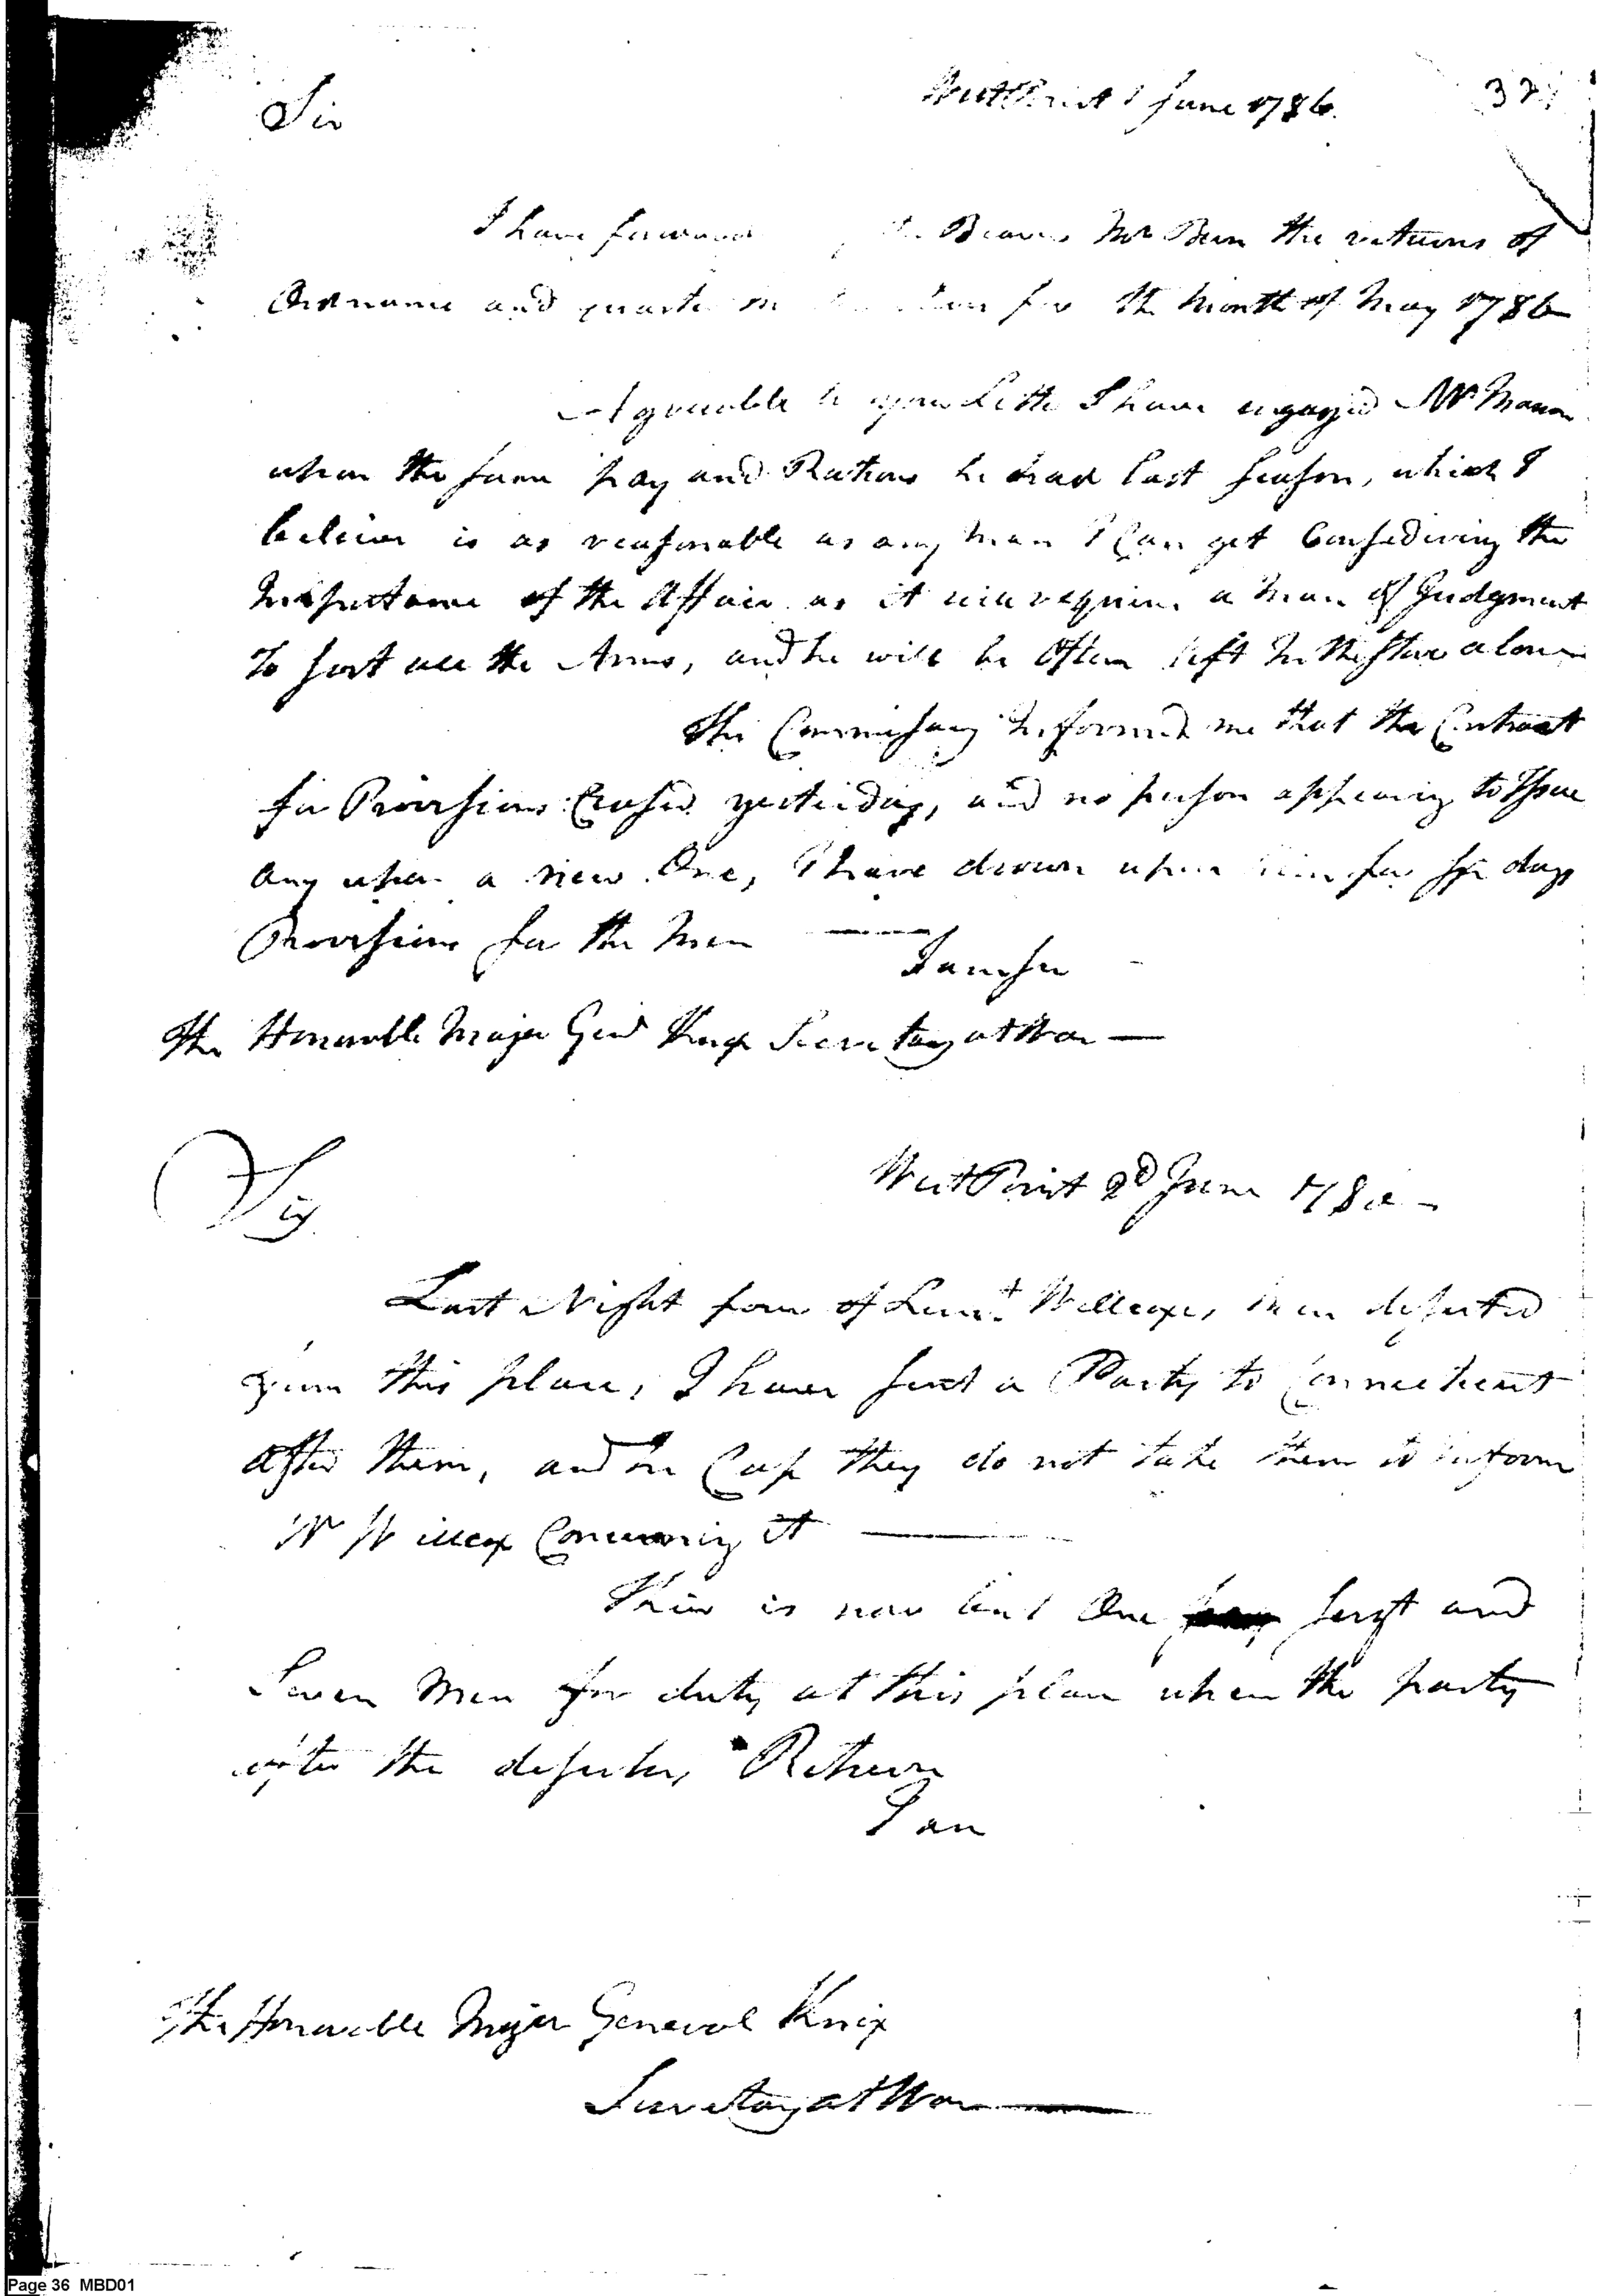 West Point 1 June 1786.
Sir
I have forward the Bearer Mr the returns of
Ordnance and quarter for the Month of May 1786
Agreeable to your Letter I have engaged Mr Mason
upon the same pay and Rations he had last season, which I
believe is as reasonable as any man I Can get Considering the
Importance of the Affair as it will require a Man of Judgment
To sort all the Arms, and he will be Often left In the Store alone
The Commissary Informed me that the Contract
for Provisions Ceased yesterday, and no person appearing to Issue
Any upon a new One, I have drawn upon him for six days
Provisions for the Men
I am Sir
The Honorable Major Genl Knox Secretary at War
West Point 2d June 1786
Sir
Last Night four of Lieut Willcox's men deserted
from this place, I have sent a Party to Connecticut
After them, and in Case they do not take them to inform
Mr Willcox Concerning it
There is now but One Sergt and
Seven Men for duty at this place when the party
after the deserters Return
I am
The Honorable Major General Knox
Secretary at War
Page 36 MBD01